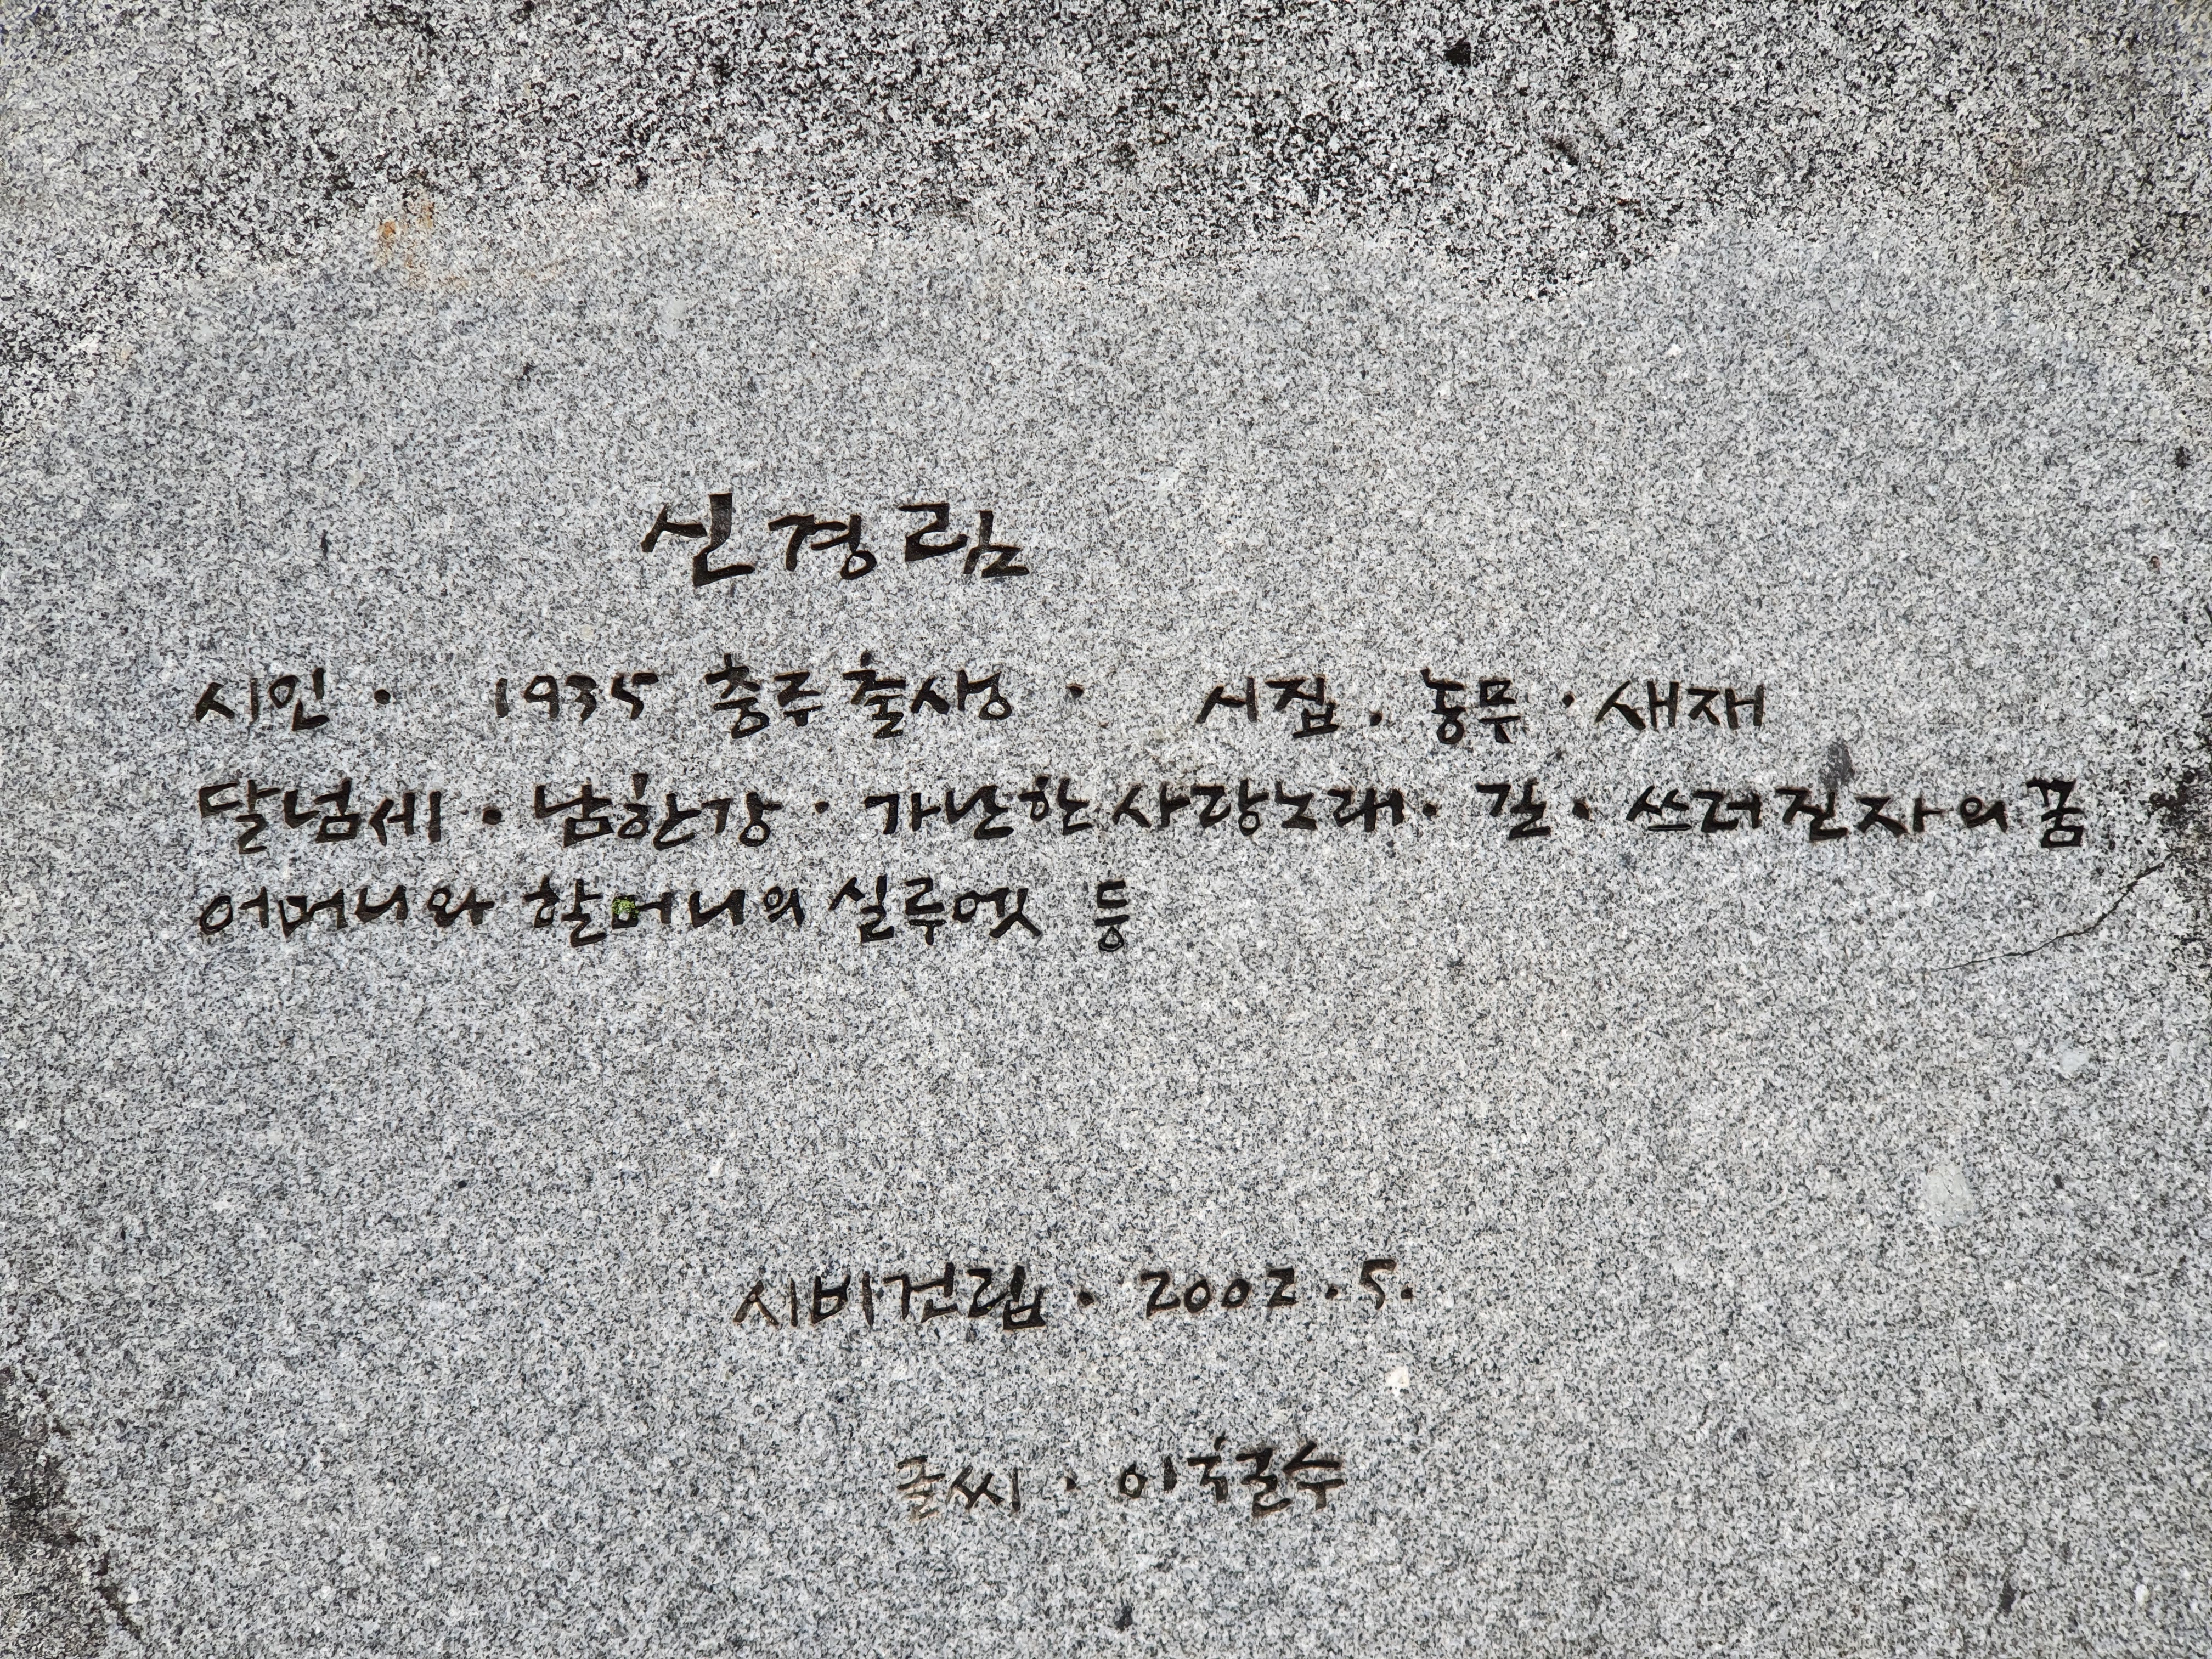 신경림
시인 · 1935 충주 출생 · 시집 · 농무 · 새재
달넘세 · 남한강 · 가난한 사랑노래 · 길 · 쓰러진 자의 꿈
어머니와 할머니의 실루엣 등
시비건립 · 2002 · 5 ·
글씨 · 이철수